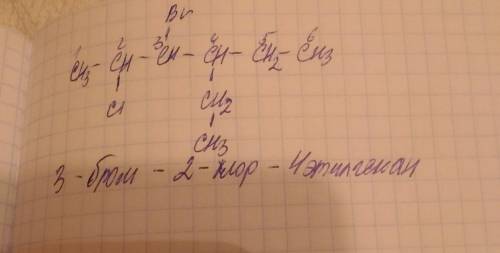 Br
1 2 3 4 5 6
CH3 - CH - CH - CH - CH2 - CH3
Cl CH2
CH3
3 - бром - 2 - хлор - 4 этилгексан